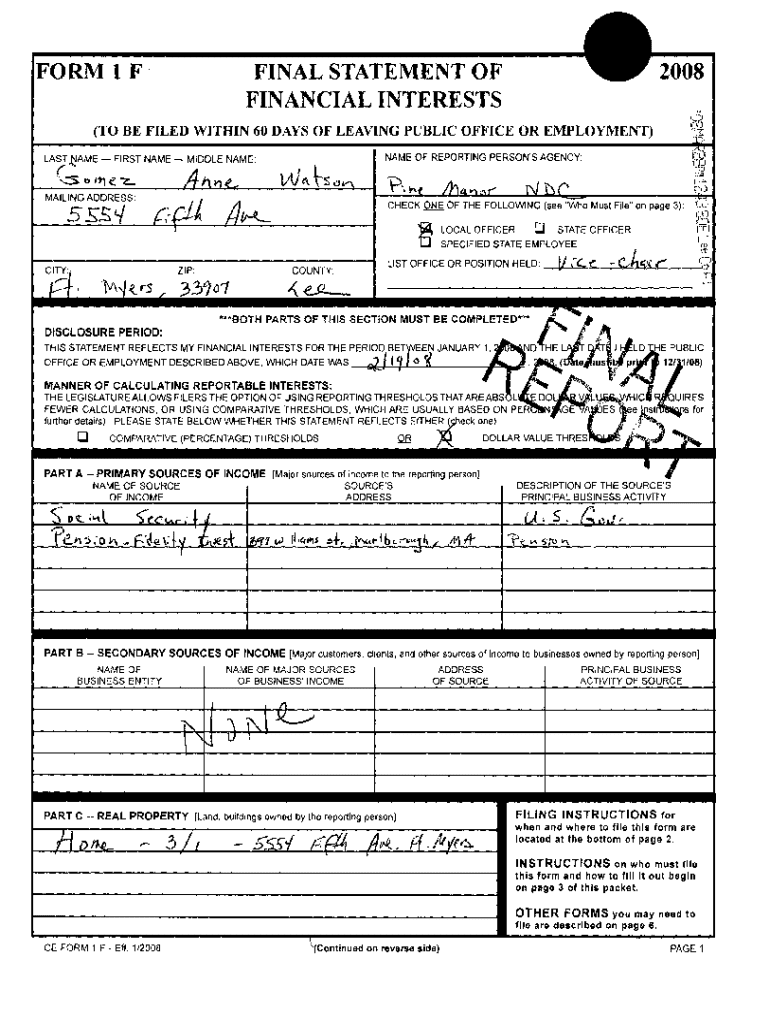 FORM 1 F FINAL STATEMENT OF 2008
FINANCIAL INTERESTS
(TO BE FILED WITHIN 60 DAYS OF LEAVING PUBLIC OFFICE OR EMPLOYMENT)
LAST NAME — FIRST NAME — MIDDLE NAME:
Gomez Anne Watson
NAME OF REPORTING PERSON'S AGENCY:
Pine Manor NDC
MAILING ADDRESS:
5554 Fifth Ave
CHECK ONE OF THE FOLLOWING (see "Who Must File" on page 3):
LOCAL OFFICER STATE OFFICER
SPECIFIED STATE EMPLOYEE
LIST OFFICE OR POSITION HELD: Vice-Chair
CITY: ZIP: COUNTY:
Ft. Myers, 33907 Lee
***BOTH PARTS OF THIS SECTION MUST BE COMPLETED***
DISCLOSURE PERIOD:
THIS STATEMENT REFLECTS MY FINANCIAL INTERESTS FOR THE PERIOD BETWEEN JANUARY 1, 2008 AND THE LAST DATE I HELD THE PUBLIC
OFFICE OR EMPLOYMENT DESCRIBED ABOVE, WHICH DATE WAS 2/19/08, 2008, (Date must be prior to 12/31/08)
FINAL REPORT
MANNER OF CALCULATING REPORTABLE INTERESTS:
THE LEGISLATURE ALLOWS FILERS THE OPTION OF USING REPORTING THRESHOLDS THAT ARE ABSOLUTE DOLLAR VALUES, WHICH REQUIRES
FEWER CALCULATIONS, OR USING COMPARATIVE THRESHOLDS, WHICH ARE USUALLY BASED ON PERCENTAGE VALUES (see instructions for
further details). PLEASE STATE BELOW WHETHER THIS STATEMENT REFLECTS EITHER (check one)
COMPARATIVE (PERCENTAGE) THRESHOLDS OR DOLLAR VALUE THRESHOLDS
PART A -- PRIMARY SOURCES OF INCOME [Major sources of income to the reporting person]
NAME OF SOURCE SOURCE'S DESCRIPTION OF THE SOURCE'S
OF INCOME ADDRESS PRINCIPAL BUSINESS ACTIVITY
Social Security U.S. Gov.
Pension - Fidelity Invest Williams st, Marlborough, MA Pension
PART B -- SECONDARY SOURCES OF INCOME [Major customers, clients, and other sources of income to businesses owned by reporting person]
NAME OF NAME OF MAJOR SOURCES ADDRESS PRINCIPAL BUSINESS
BUSINESS ENTITY OF BUSINESS' INCOME OF SOURCE ACTIVITY OF SOURCE
None
PART C -- REAL PROPERTY [Land, buildings owned by the reporting person]
Home - 3/1 - 5554 Fifth Ave. Ft. Myers
FILING INSTRUCTIONS for
when and where to file this form are
located at the bottom of page 2.
INSTRUCTIONS on who must file
this form and how to fill it out begin
on page 3 of this packet.
OTHER FORMS you may need to
file are described on page 6.
CE FORM 1 F - Eff. 1/2008 (Continued on reverse side) PAGE 1